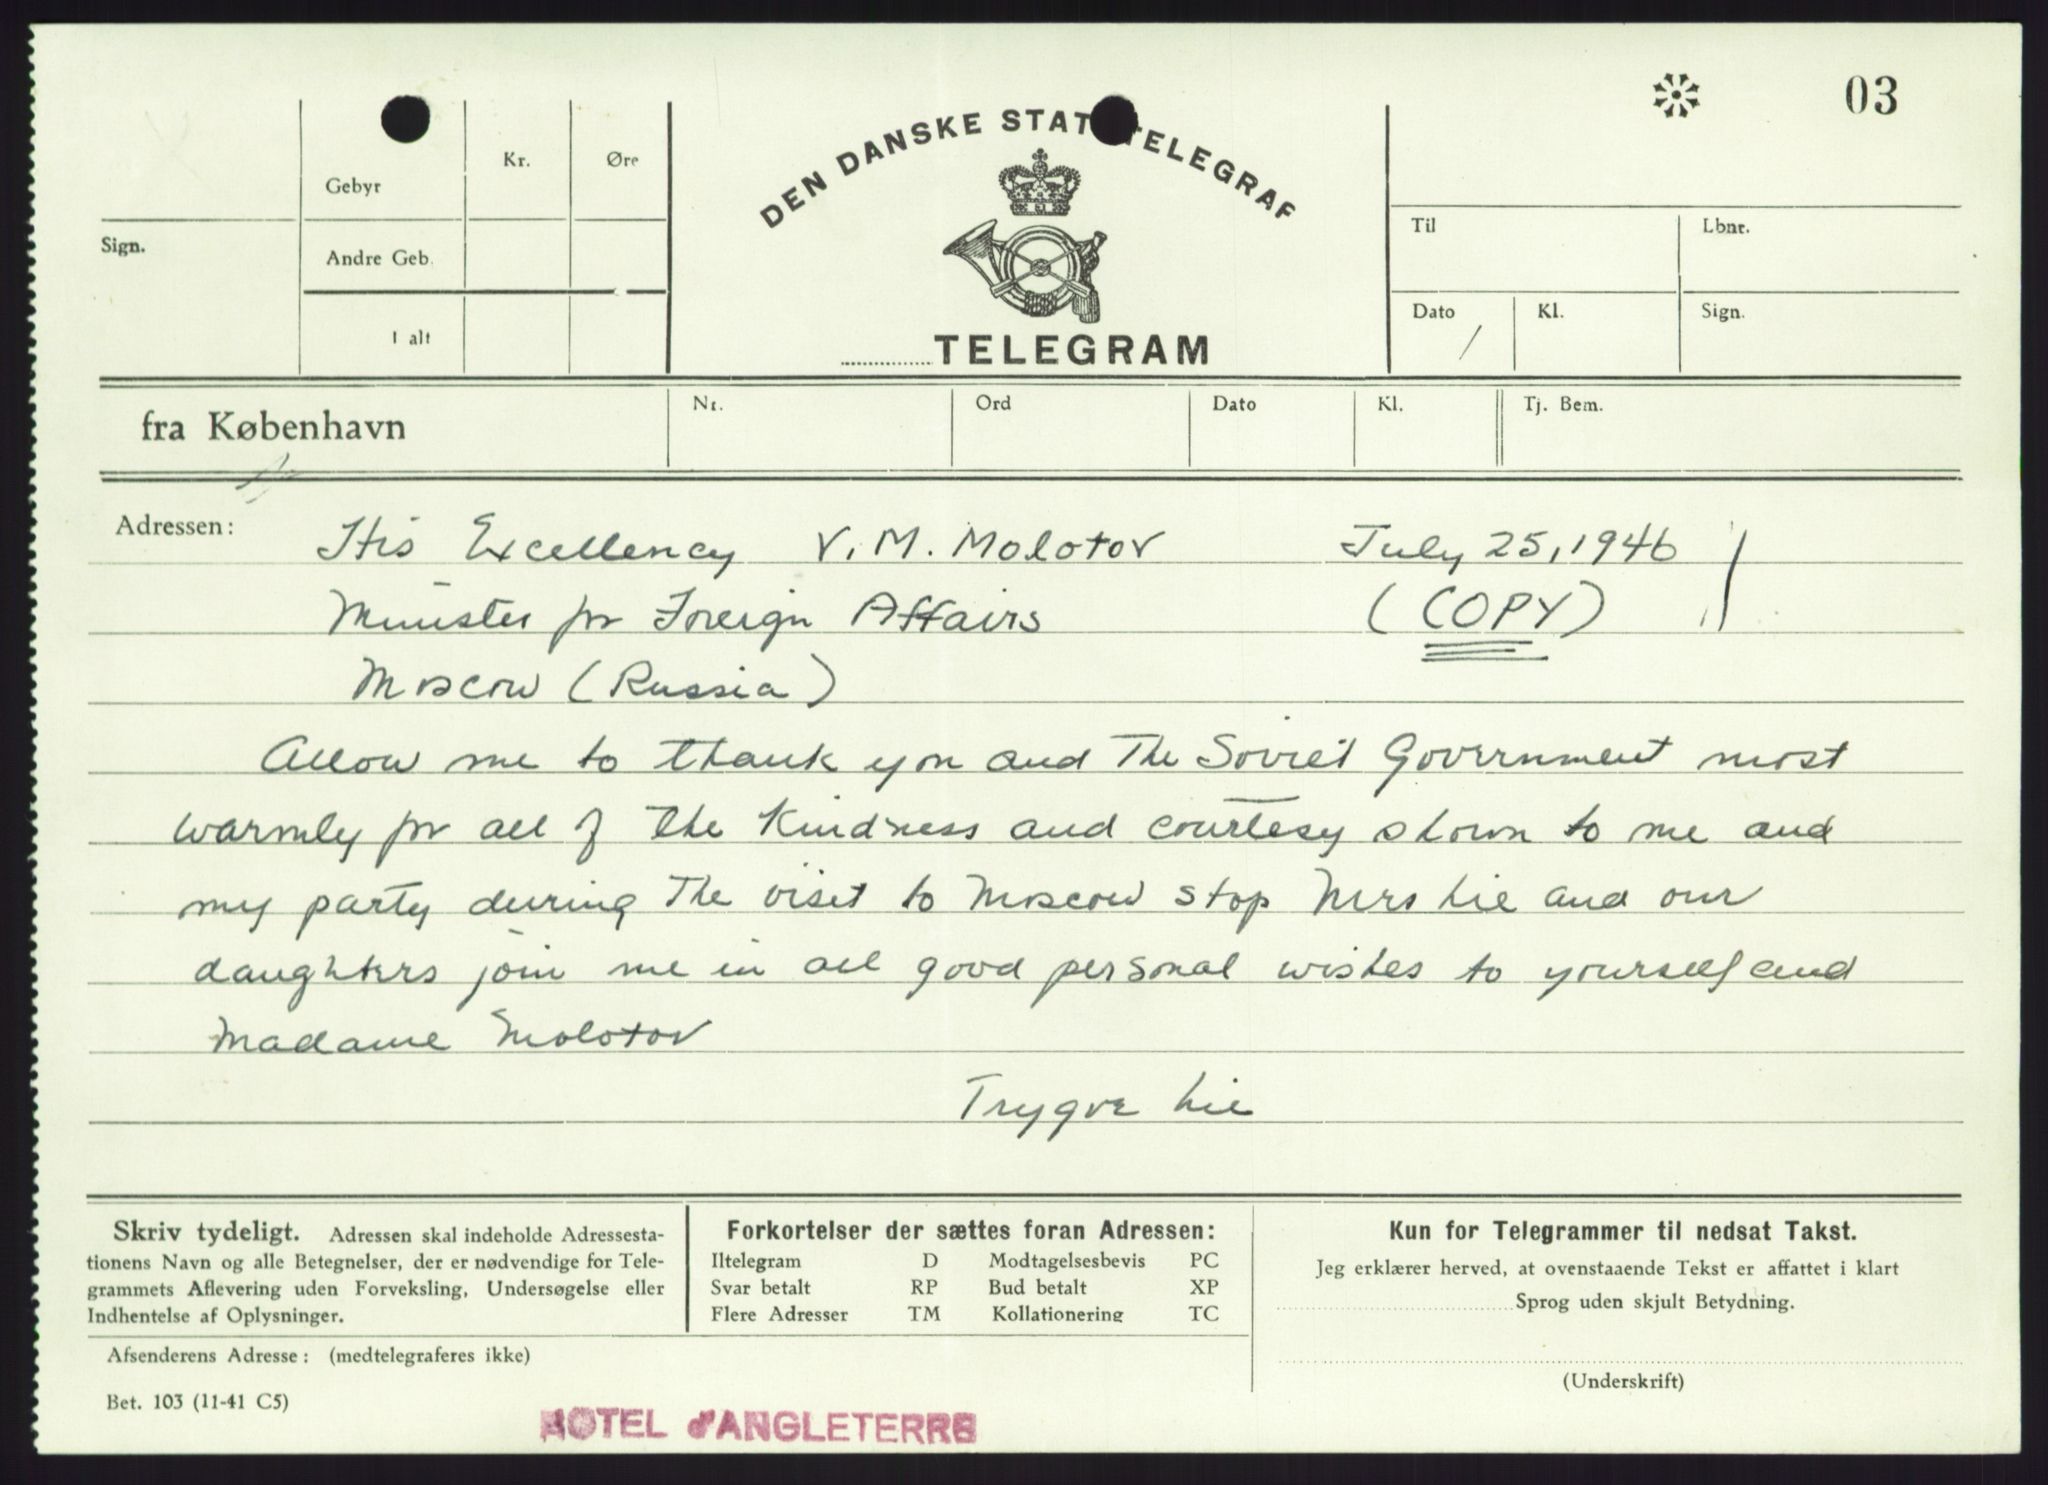 03
Kr.
Øre
Gebyr
Sign.
Andre Geb.
I alt
DEN DANSKE STAT TELEGRAF
TELEGRAM
Til
Lbnr.
Dato
/
Kl.
Sign.
fra København
Nr.
Ord
Dato
Kl.
Tj. Bem.
Adressen:
His Excellency V. M. Molotov
July 25, 1946
Minister for Foreign Affairs
(COPY)
Moscow (Russia)
Allow me to thank you and The Soviet Government most
warmly for all of the kindness and courtesy shown to me and
my party during The visit to Moscow stop Mrs Lie and our
daughters join me in all good personal wishes to yourself and
Madame Molotov
Trygve Lie
Skriv tydeligt. Adressen skal indeholde Adressesta-
tionens Navn og alle Betegnelser, der er nødvendige for Tele-
grammets Aflevering uden Forveksling, Undersøgelse eller
Indhentelse af Oplysninger.
Forkortelser der sættes foran Adressen:
Iltelegram D Modtagelsesbevis PC
Svar betalt RP Bud betalt XP
Flere Adresser TM Kollationering TC
Kun for Telegrammer til nedsat Takst.
Jeg erklærer herved, at ovenstaaende Tekst er affattet i klart
Sprog uden skjult Betydning.
(Underskrift)
Afsenderens Adresse: (medtelegraferes ikke)
Bet. 103 (11-41 C5)
HOTEL d'ANGLETERRE